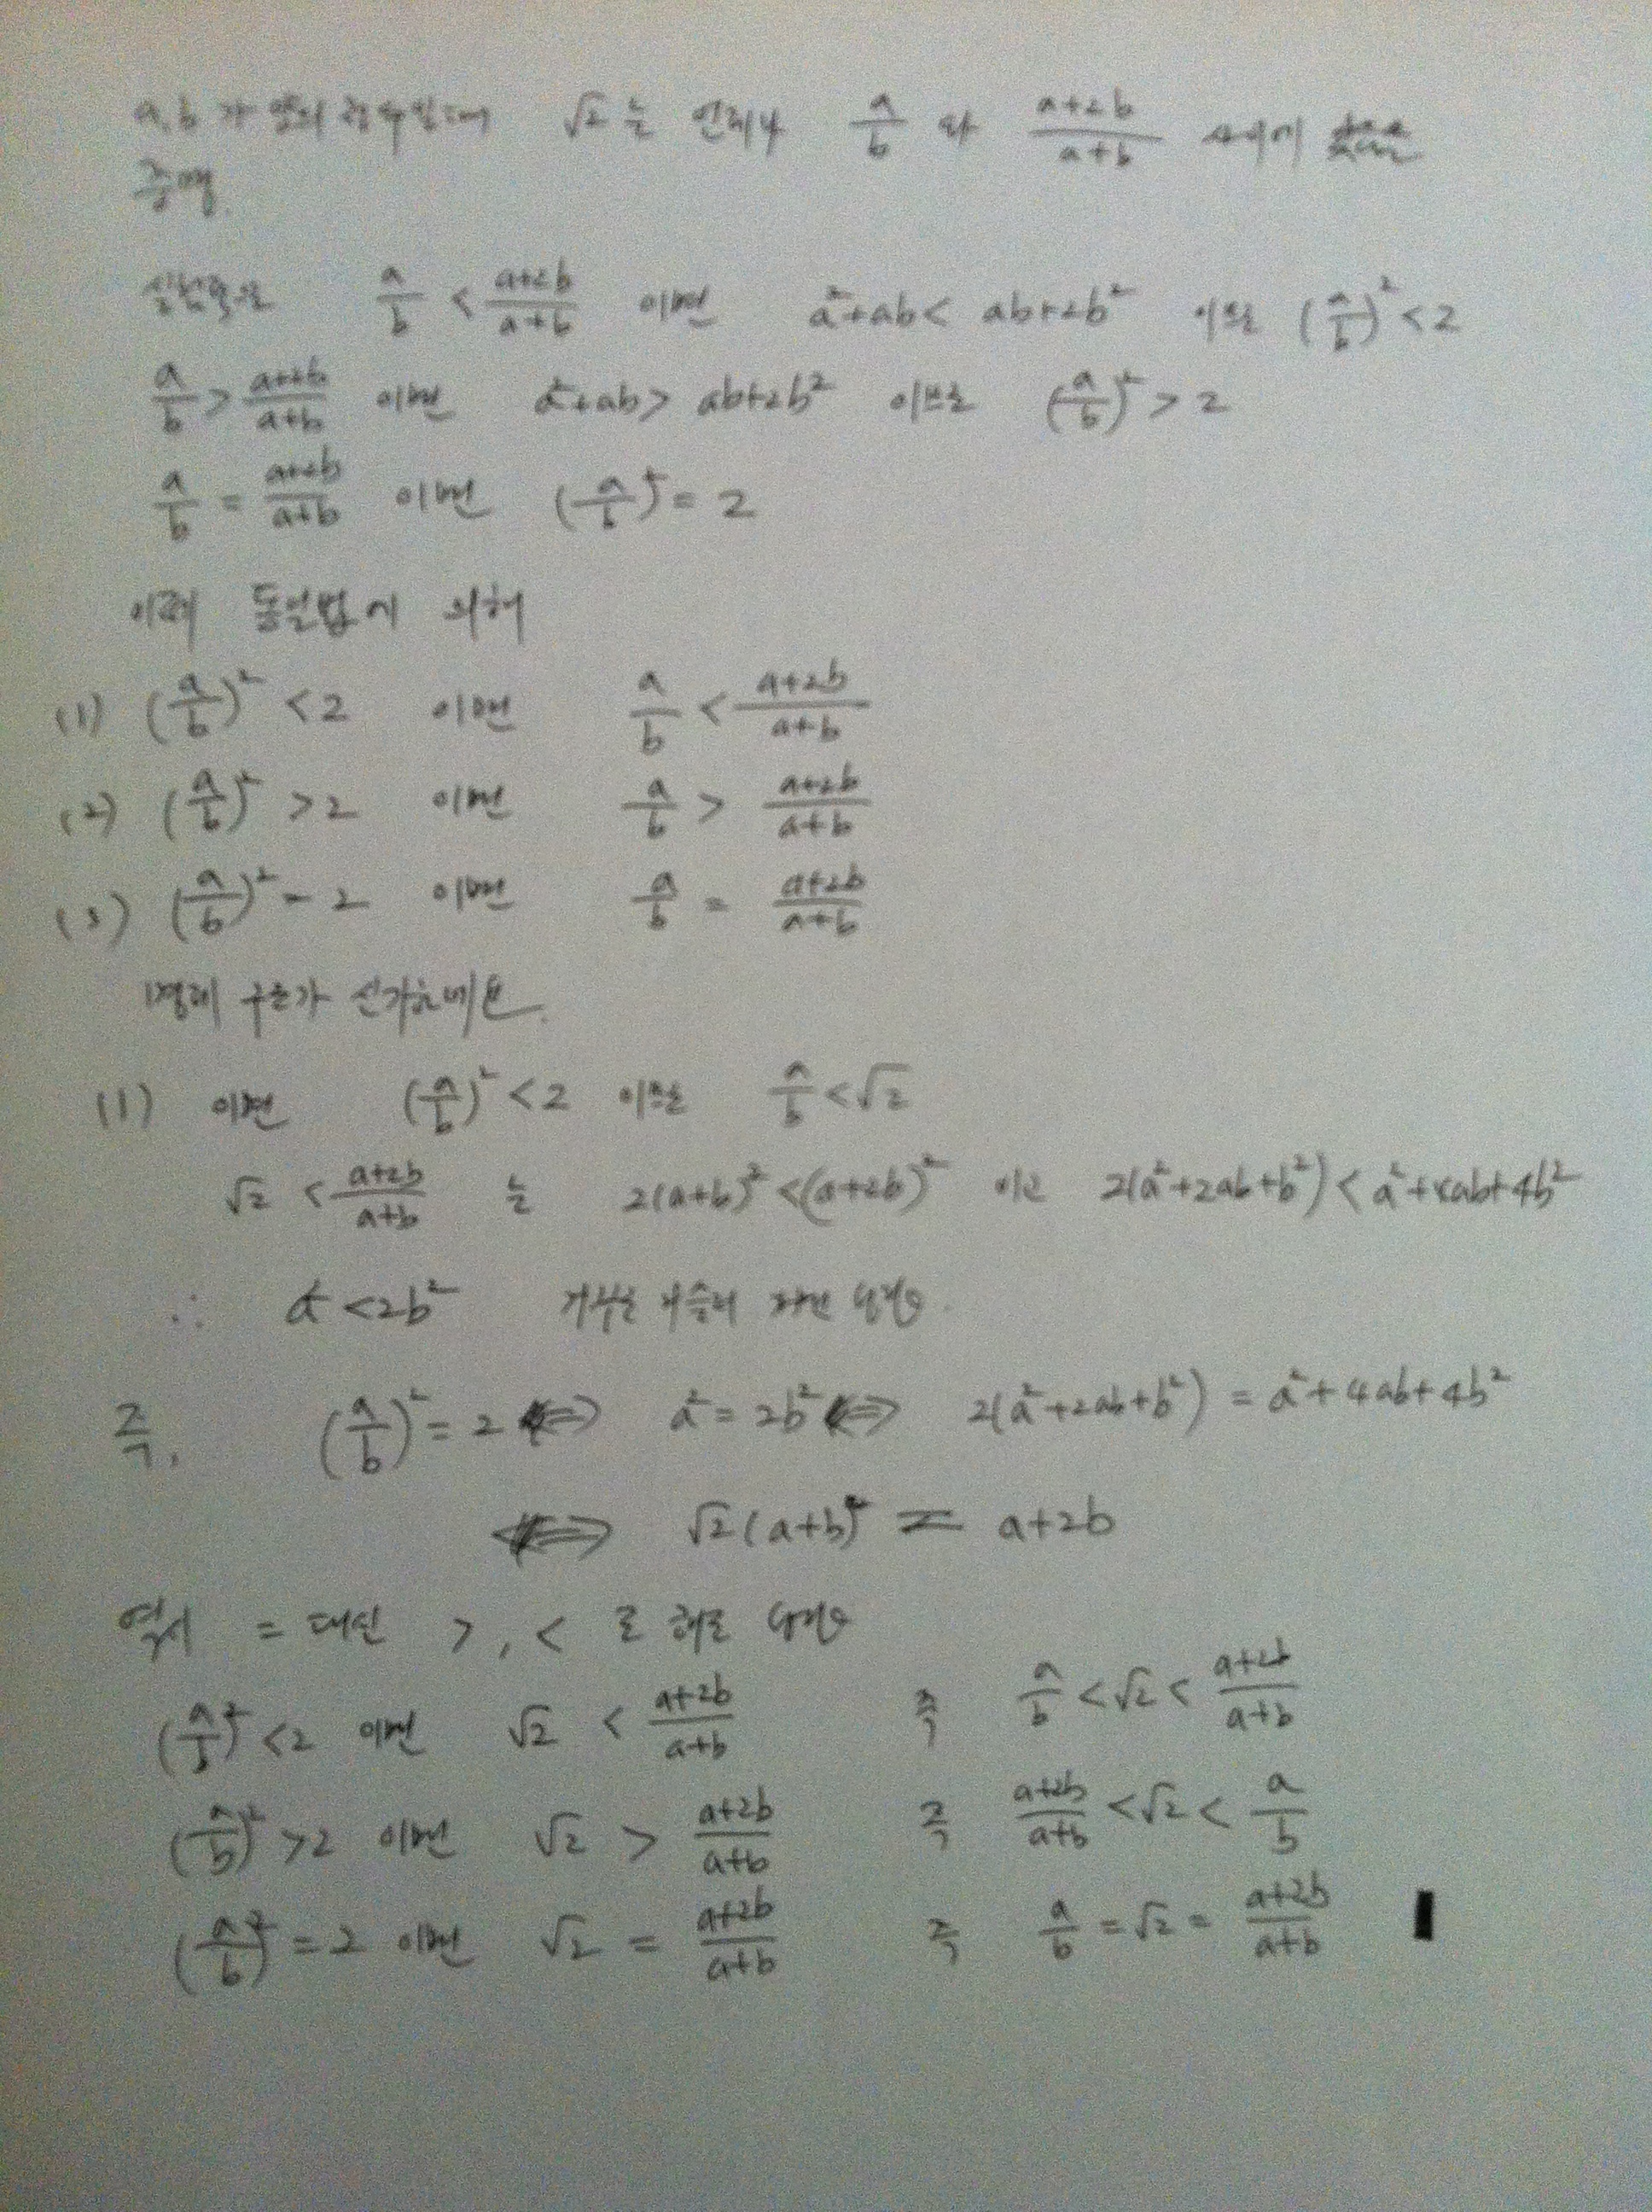 a, b 가 양의 정수일때 √2 는 언제나 a/b 와 (a+2b)/(a+b) 사이에
증명.
a/b < (a+2b)/(a+b) 이면 a²+ab < ab+2b² 이므로 (a/b)² < 2
a/b > (a+2b)/(a+b) 이면 a²+ab > ab+2b² 이므로 (a/b)² > 2
a/b = (a+2b)/(a+b) 이면 (a/b)² = 2
이제 동일법에 의해
(1) (a/b)² < 2 이면 a/b < (a+2b)/(a+b)
(2) (a/b)² > 2 이면 a/b > (a+2b)/(a+b)
(3) (a/b)² = 2 이면 a/b = (a+2b)/(a+b)
(1) 이면 (a/b)² < 2 이므로 a/b < √2
√2 < (a+2b)/(a+b) 는 2(a+b)² < (a+2b)² 이고 2(a²+2ab+b²) < a²+4ab+4b²
∴ a² < 2b² 거꾸로 거슬러
즉, (a/b)² = 2 ⇔ a² = 2b² ⇔ 2(a²+2ab+b²) = a²+4ab+4b²
⇔ √2(a+b) = a+2b
역시 = 대신 >, < 로 해도
(a/b)² < 2 이면 √2 < (a+2b)/(a+b) 즉 a/b < √2 < (a+2b)/(a+b)
(a/b)² > 2 이면 √2 > (a+2b)/(a+b) 즉 (a+2b)/(a+b) < √2 < a/b
(a/b)² = 2 이면 √2 = (a+2b)/(a+b) 즉 a/b = √2 = (a+2b)/(a+b)